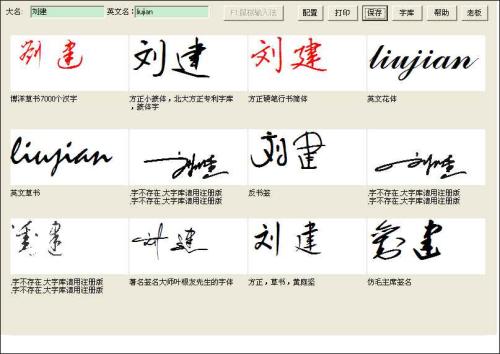 大名: 刘建 英文名: liujian F1鼠标输入法 配置 打印 保存 字库 帮助 老板
刘建 刘建 刘建 liujian
博洋草书7000个汉字 方正小篆体，北大方正专利字库，篆体字 方正硬笔行书简体 英文花体
liujian 刘建 刘建 刘建
英文草书 .字不存在.大字库请用注册版 .字不存在.大字库请用注册版 反书签 .字不存在.大字库请用注册版 .字不存在.大字库请用注册版
刘建 叶建 刘建 刘建
.字不存在.大字库请用注册版 .字不存在.大字库请用注册版 著名签名大师叶根友先生的字体 方正，草书，黄庭坚 仿毛主席签名